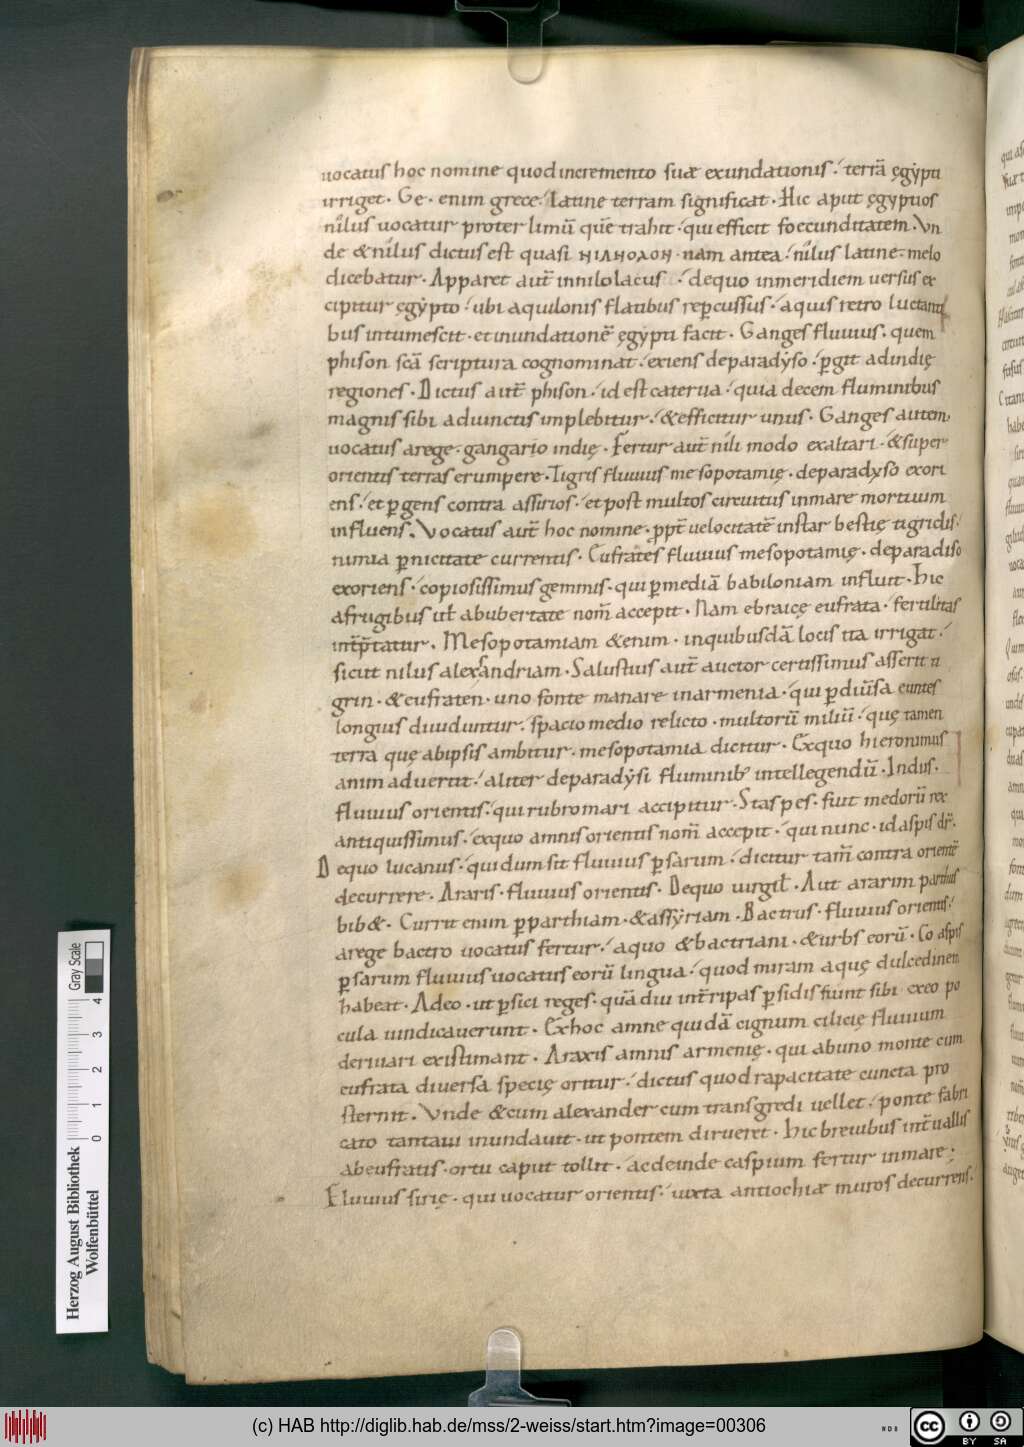 uocatus hoc nomine quod incremento suæ exundationis. terrā ęgẏpti
irriget. Ge. enim grece. Latine terram significat. Hic aput ęgyptios
nilus uocatur propter limū quē trahit. qui efficit foecunditatem. Vn
de & nilus dictus est quasi ΝΙΛΗΟΛΟΝ. nam antea. nilus latine. melo
dicebatur. Apparet aut̄ in nilo lacus. de quo in meridiem uersus ex
cipitur ęgẏpto. ubi aquilonis flatibus rep̱cussus. aquis retro luctanti
bus intumescit. et inundationē ęgẏpti facit. Ganges fluuius. quem
phison scā scriptura cognominat. exiens de paradẏso. p̱git ad indię
regiones. Dictus aut̄ phison. id est caterua. quia decem fluminibus
magnis sibi adiunctis implebitur. & efficitur unus. Ganges autem
uocatus a rege. gangario indię. Fertur aut̄ nili modo exaltari. & super
orientis terras erumpere. Tigris fluuius mesopotamię. de paradyso exori
ens. et p̱gens contra assirios. et post multos circuitus in mare mortuum
influens. Vocatus aut̄ hoc nomine. ꝓpt̄ uelocitatē instar bestię tigridis.
nimia p̱nicitate currentis. Eufrates fluuius mesopotamię. de paradiso
exoriens. copiosissimus gemmis. qui p̱ mediā babiloniam influit. Hic
a frugibus ut̄ ab ubertate nom̄ accepit. Nam ebraicę eufrata. fertilitas
int̄p̄tatur. Mesopotamiam & enim. in quibusdā locis ita irrigat.
sicut nilus alexandriam. Salustius aut̄ auctor certissimus asserit ti
grin. & eufraten. uno fonte manare in armenia. qui p̱ diūsa euntes
longius diuiduntur. spacio medio relicto. multorū miliū. quę tamen
terra quę ab ipsis ambitur. mesopotamia dicitur. Ex quo hieronimus
animaduertit. aliter de paradẏsi fluminib; intellegendū. Indus.
fluuius orientis. qui rubro mari accipitur. Staspes. fuit medorū rex
antiquissimus. ex quo amnis orientis nom̄ accepit. qui nunc. idaspis dr̄.
De quo lucanus. qui dum sit fluuius p̱sarum. dicitur tam̄ contra orientē
decurrere. Araris. fluuius orientis. De quo uirgil̄. Aut ararim parthus
bib&. Currit enim p̱ parthiam. & assẏriam. Bactrus. fluuius orientis.
a rege bactro uocatus fertur. a quo & bactriani. & urbs eorū. Coaspis
p̱sarum fluuius uocatus eorū lingua. quod miram aquę dulcedinem
habeat. Adeo. ut p̱sici reges. quā diu int̄ ripas p̱sidis fiunt sibi ex eo po
cula uindicauerunt. Ex hoc amne quidā cignum cilicię fluuium
deriuari existimant. Araxis amnis armenię. qui ab uno monte cum
eufrata diuersa specię oritur. dictus quod rapacitate cuncta pro
sternit. Vnde & cum alexander eum transgredi uellet. ponte fabri
cato tanta ui inundauit. ut pontem dirueret. Hic breuibus int̄uallis
ab eufratis. ortu caput tollit. ac deinde caspium fertur in mare;
Fluuius sirię. qui uocatur orientis. iuxta antiochiæ muros decurrens.
Herzog August Bibliothek
Wolfenbüttel
0 1 2 3 4
Gray Scale
(c) HAB http://diglib.hab.de/mss/2-weiss/start.htm?image=00306
cc BY SA